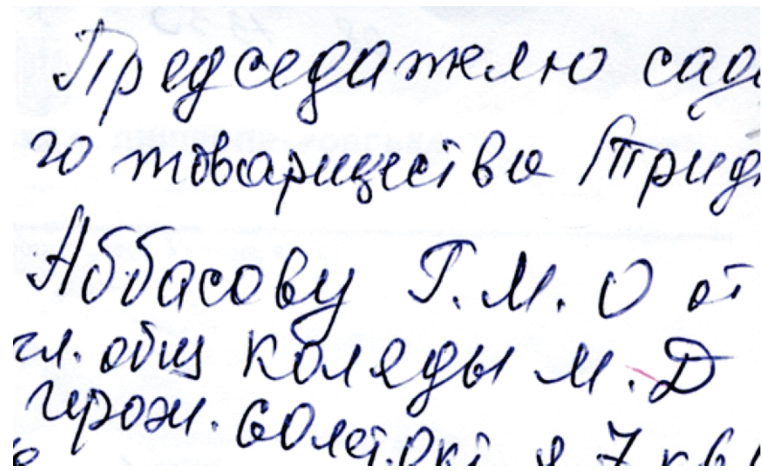 Председателю сад
го товарищества "Прид
Аббасову Г. М. О от
чл. общ Коляды М. Д
прож. 60лет.Окт. д. 7 кв